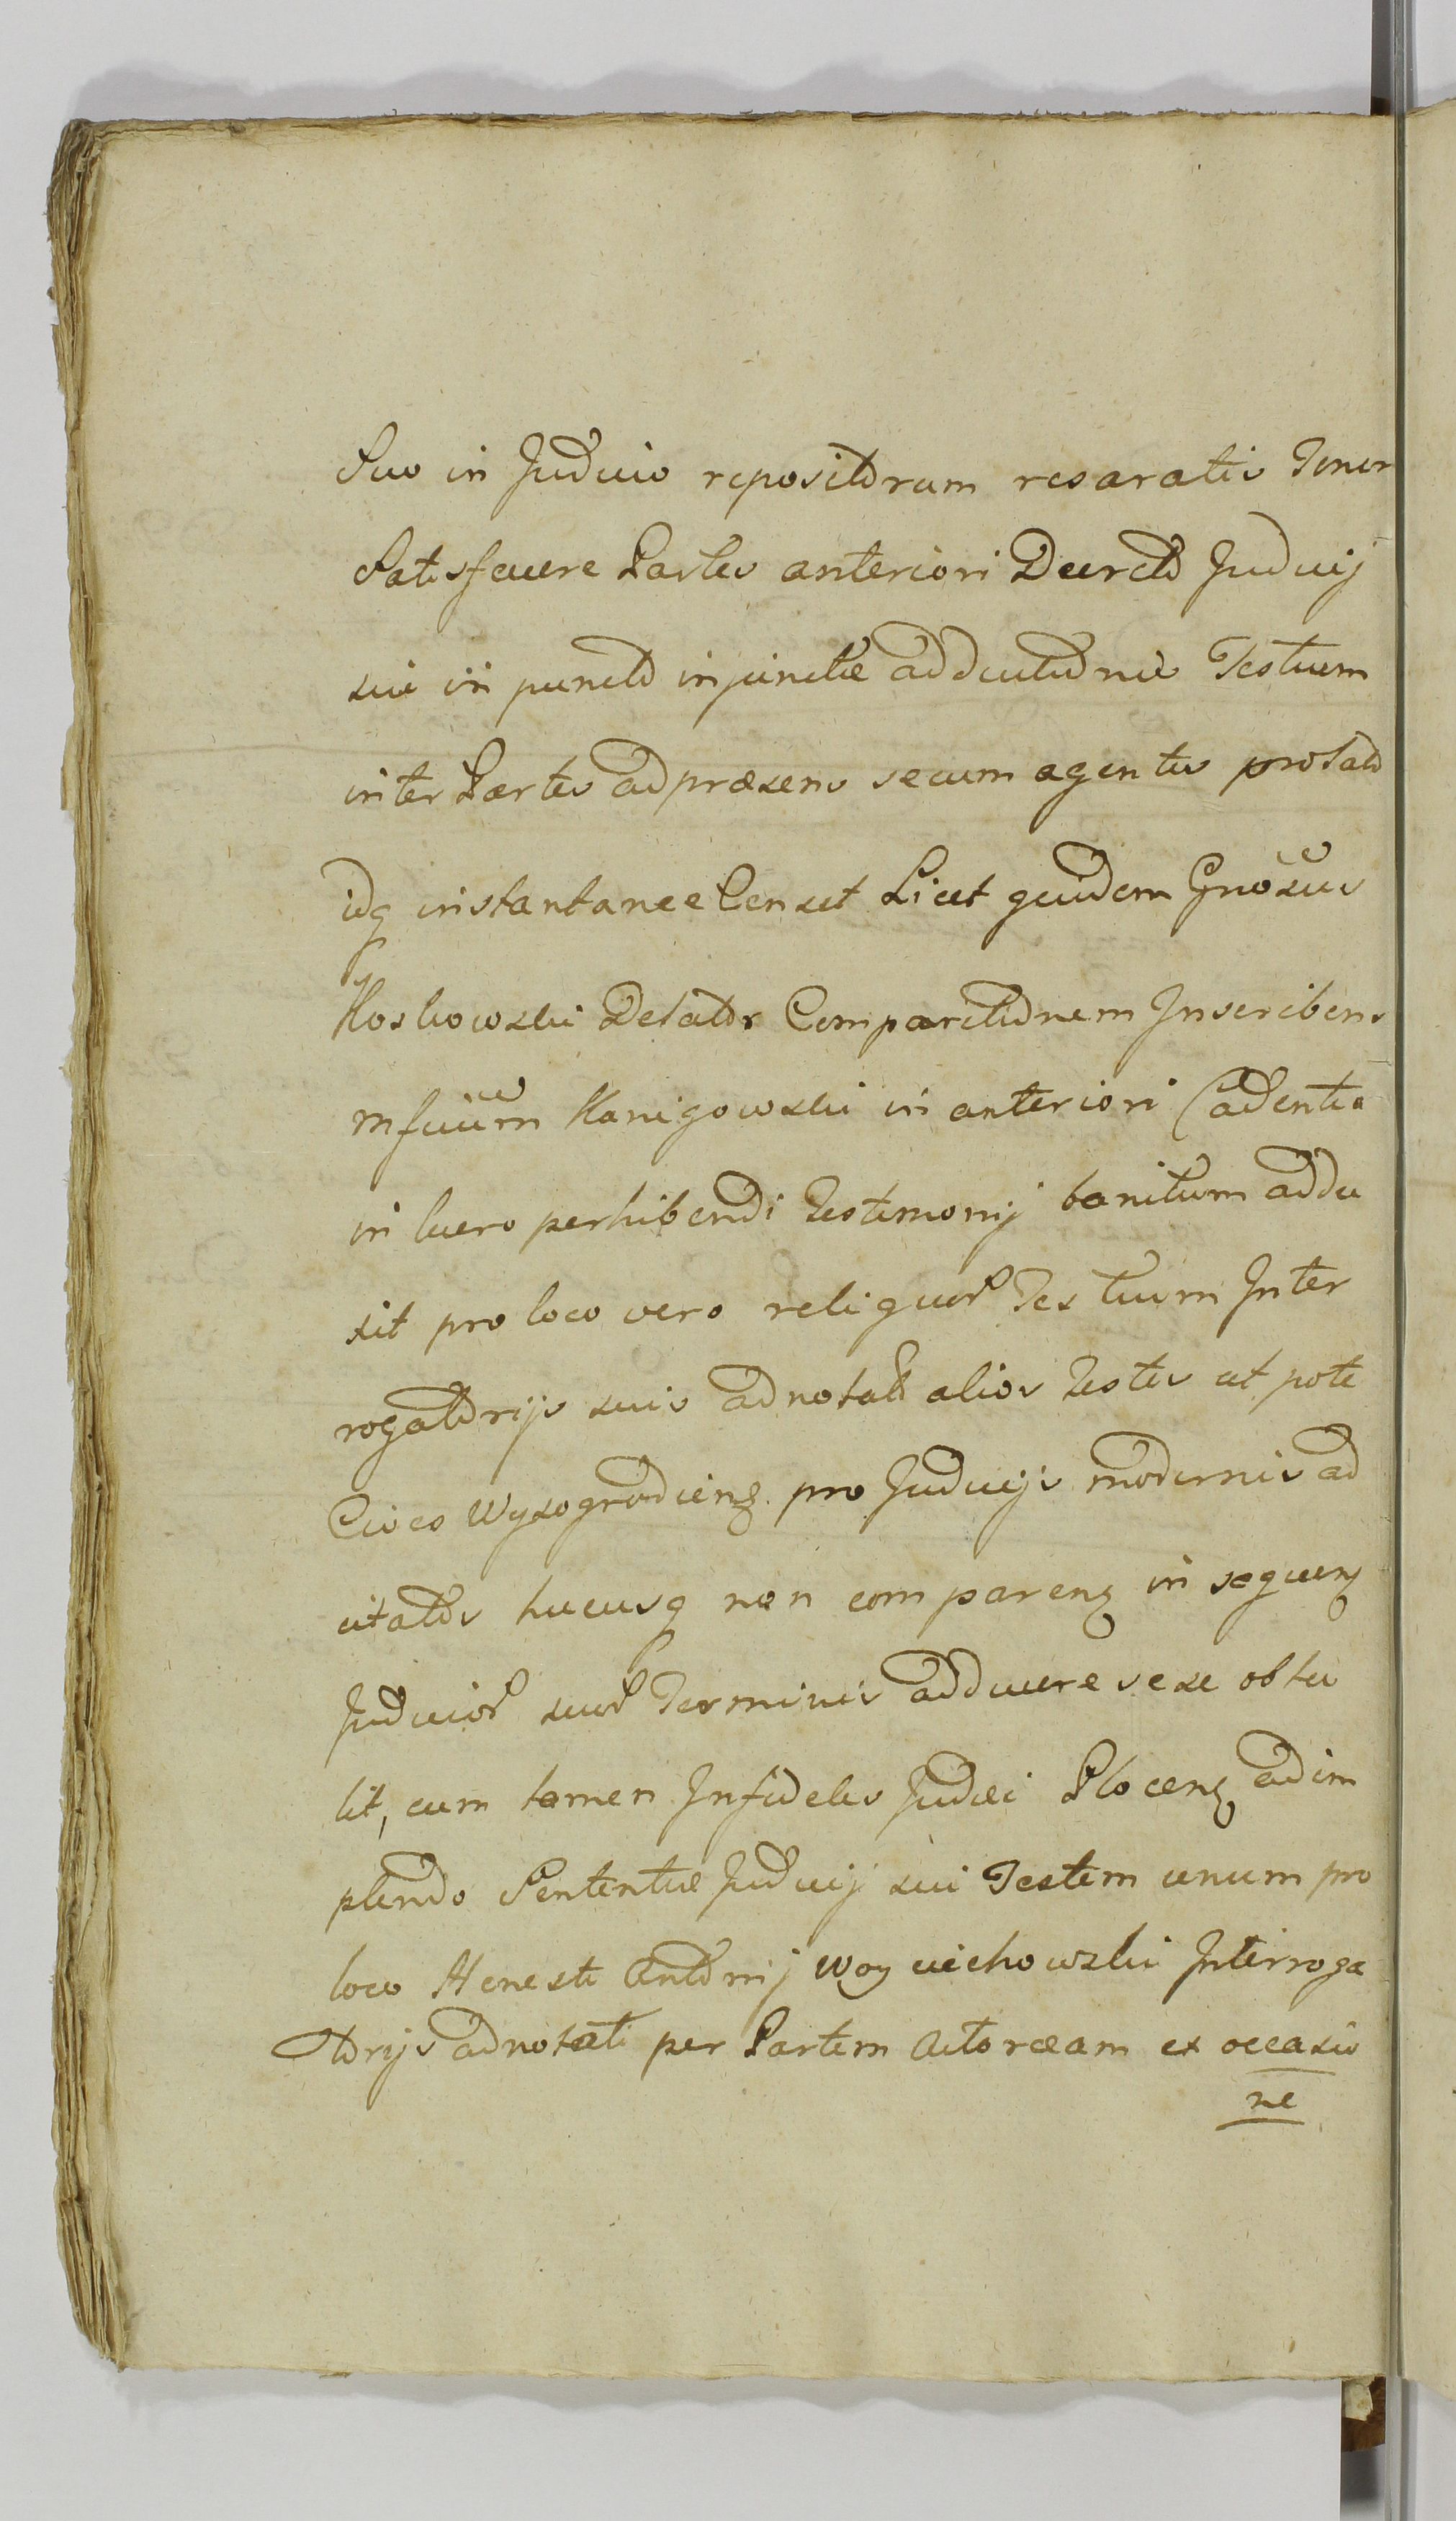 Suo in Judicio repositorum reseratis Tenor
Satisfacere Partes anteriori Decreto Judicij
sui in puncto injunctæ adductionis Testium
inter Partes ad præsens secum agentes prolato
idq instantanee Censet Licet quidem Gnõsus
Koskowski Delator Comparitionem Inscribens
Mficum Kanigowski in anteriori Cadentia
in lucro perhibendi Testimonij banitum addu
xit pro loco vero reliquor Testium Inter
rogatorijs suis adnotato alios Testes ut pote
Cives Wyszogrodiens. pro Judicijs modernis ad
citatos hucusq non comparens in sequens
Judicior suor Terminis adducere sese obtu
lit, cum tamen Infideles Judæi Plocens adim
plendo Sententiæ Judicij sui Testem unum pro
loco Honesti Antonij Woyciechowski Interroga
torijs adnotati per Partem Actoream ex occasio
ne